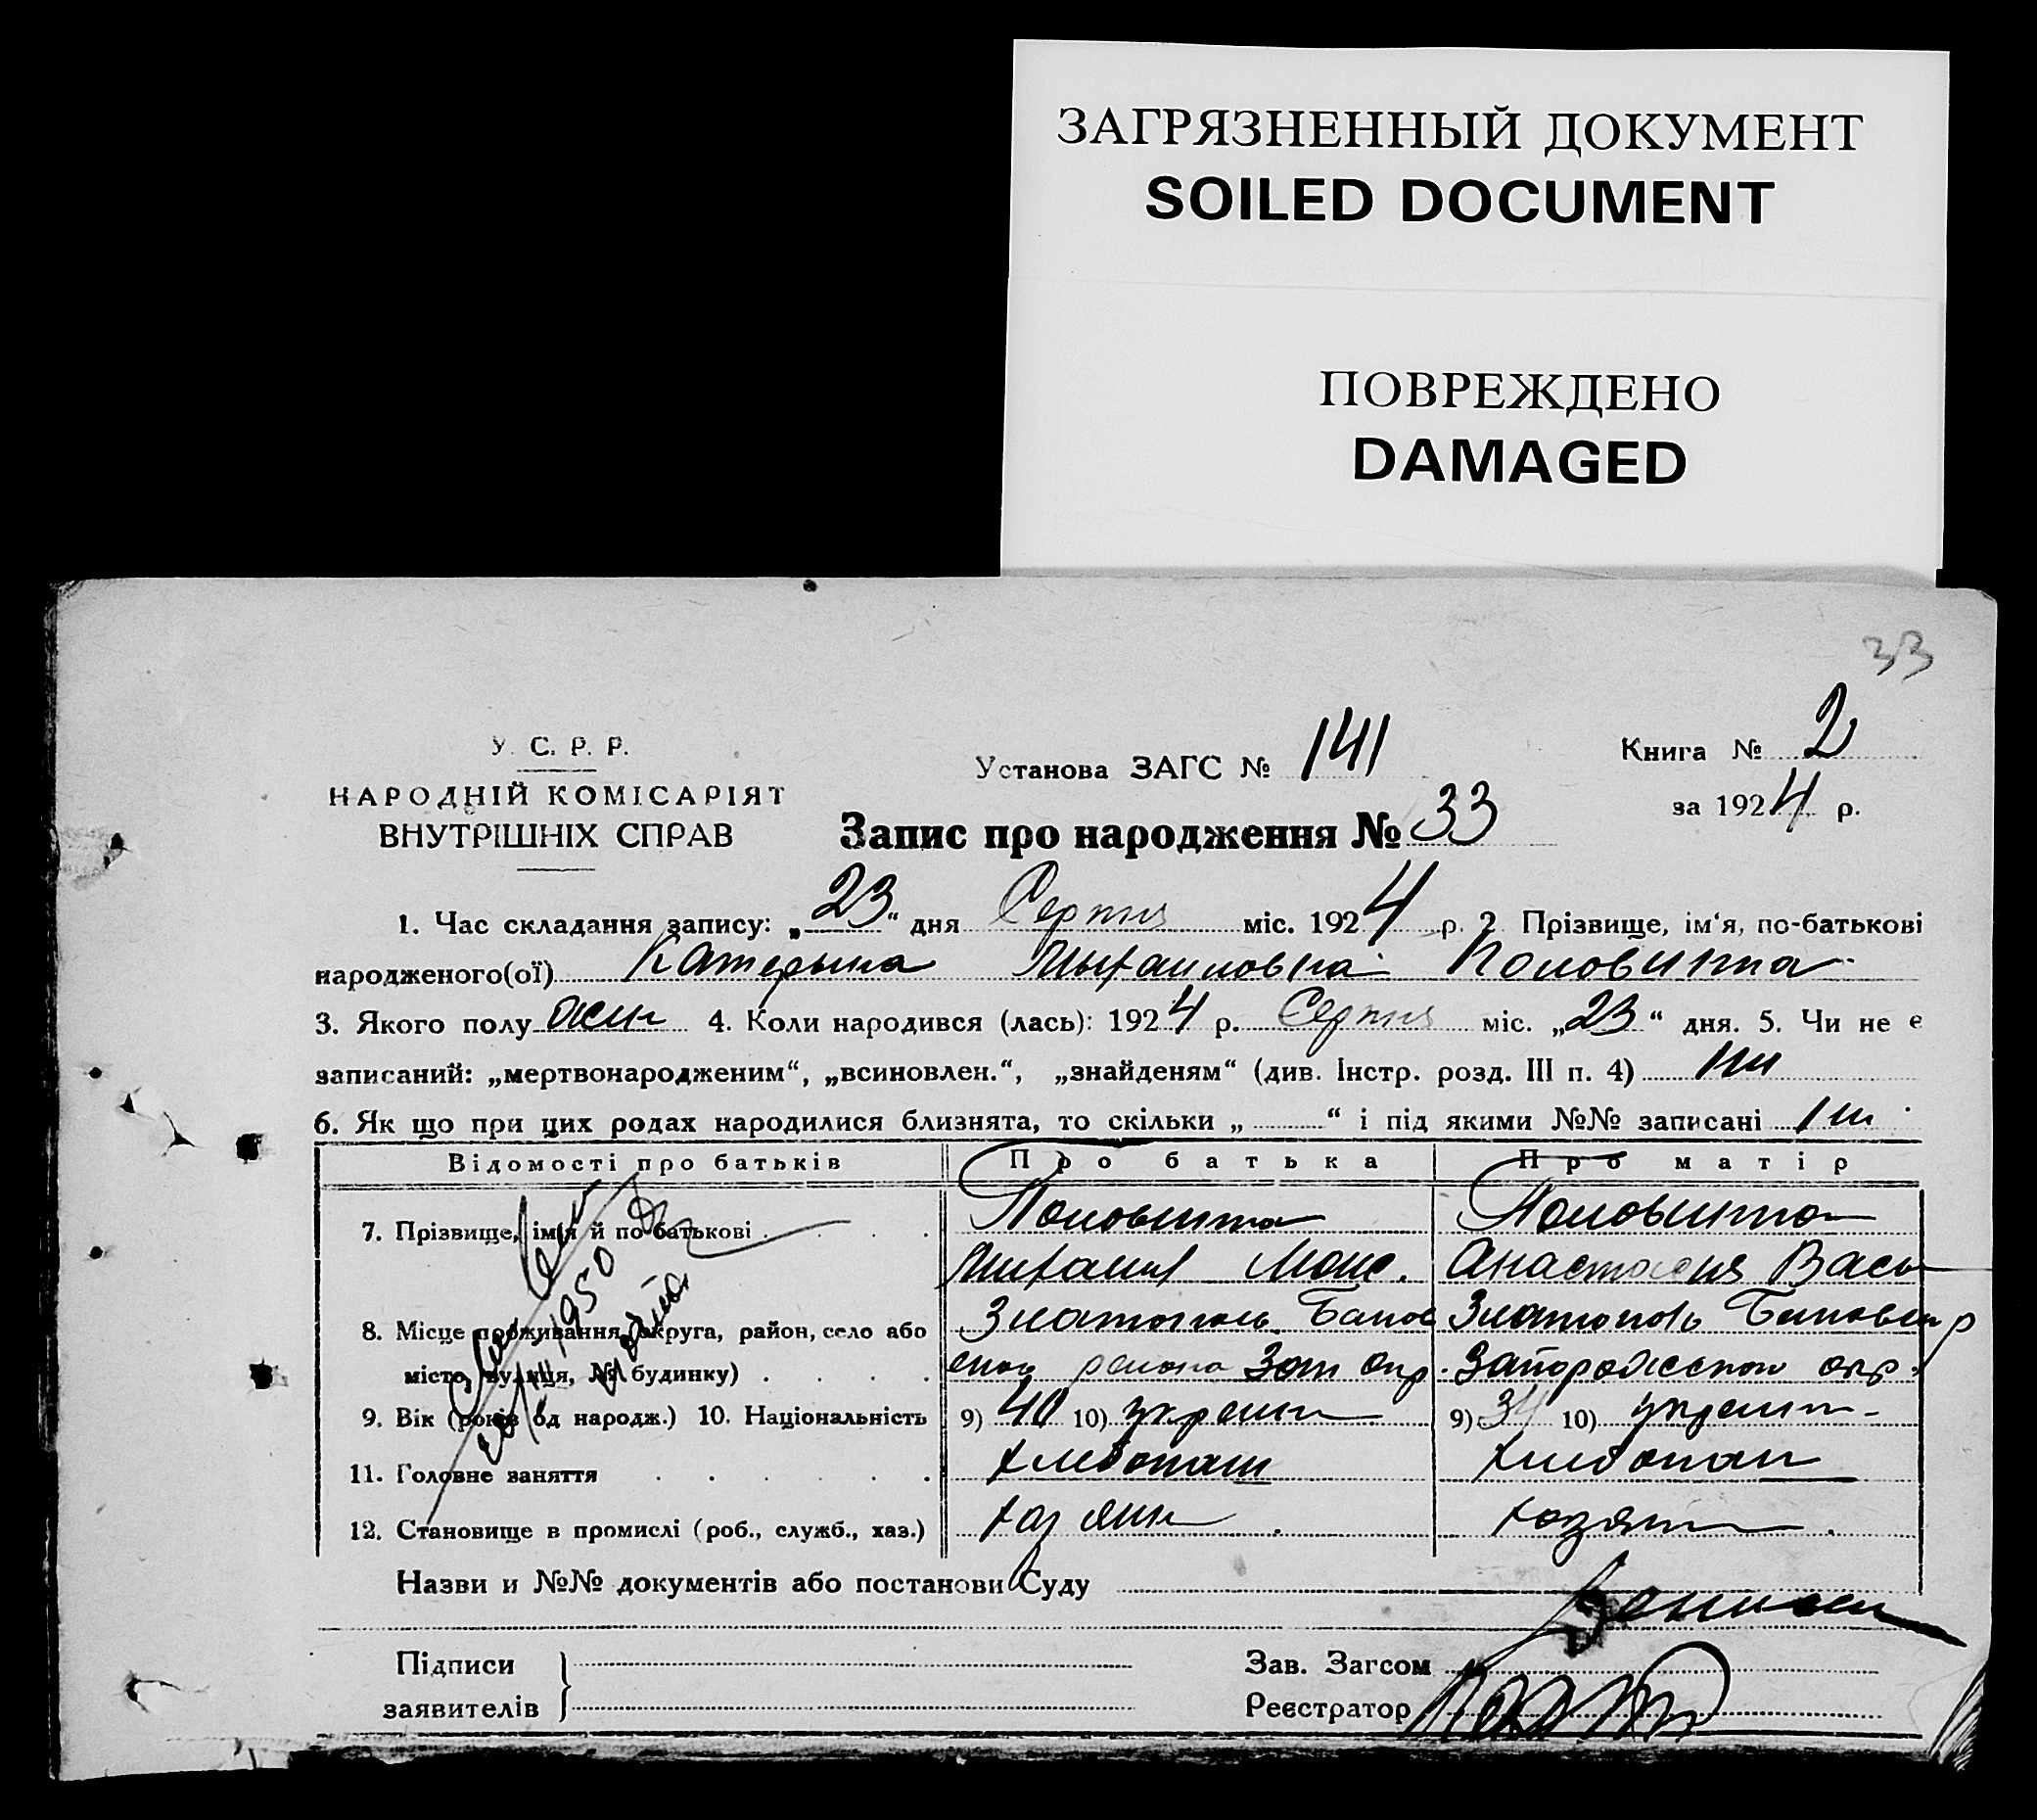 ЗАГРЯЗНЕННЫЙ ДОКУМЕНТ
SOILED DOCUMENT
ПОВРЕЖДЕНО
DAMAGED
33
У. С. Р. Р.
НАРОДНІЙ КОМІСАРІЯТ
ВНУТРІШНІХ СПРАВ
Установа ЗАГС № 141
Книга № 2
за 1924 р.
Запис про народження № 33
1. Час складання запису: „23“ дня Серпня міс. 1924 р. 2 Прізвище, ім‘я, по-батькові
народженого(ої) Катерына Мыхаиловна Половинка
3. Якого полу жин 4. Коли народився (лась): 1924 р. Серпня міс. „23“ дня. 5. Чи не є
записаний: „мертвонародженим“, „всиновлен.“, „знайденям“ (див. Інстр. розд. III п. 4) ни
6. Як що при цих родах народилися близнята, то скільки „ “ і під якими №№ записані ни
Відомості про батьків Про батька Про матір
7. Прізвище, ім‘я й по батькові Половинка Половинка
Михаил Моис. Анастасия Васы
8. Місце проживання, округа, район, село або Златополь Златополь
місто, вулиця, № будинку) района Зап окр. Запорожской окр.
9. Вік (років од народж.) 10. Національність 9) 40 10) украин 9) 34 10) украин
11. Головне заняття хлебопаш хлебопаш
12. Становище в промислі (роб., служб., хаз.) хазяин хозяин
1950
Назви и №№ документів або постанови Суду
Підписи
заявителів
Зав. Загсом
Реєстратор